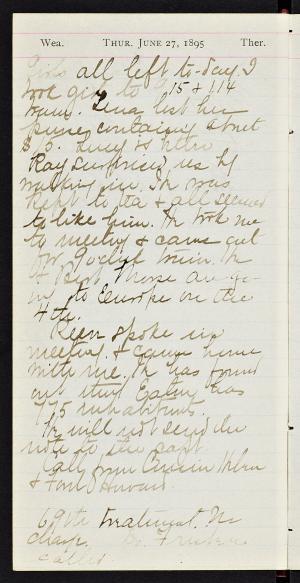 Wea. THUR. JUNE 27, 1895 Ther.
Girls all left to-day. I
took girls to 15 + 114
train. Lena lost her
purse containing about
$15. Lucy & Helen
Ray surprised us by
walking in. He was
kept to tea & all seemed
to like him. He took me
to meeting & came out
for 9 o'clock train. He
& Bert Morse are go-
ing to Europe on the
4th.
Keen spoke in
meeting & came home
with me. He has found
out that Eaton has
75 inhabitants.
He will not send the
note to the capt.
Call from Cousin Helen
& Howard.
69th treatment. No
charge.
called